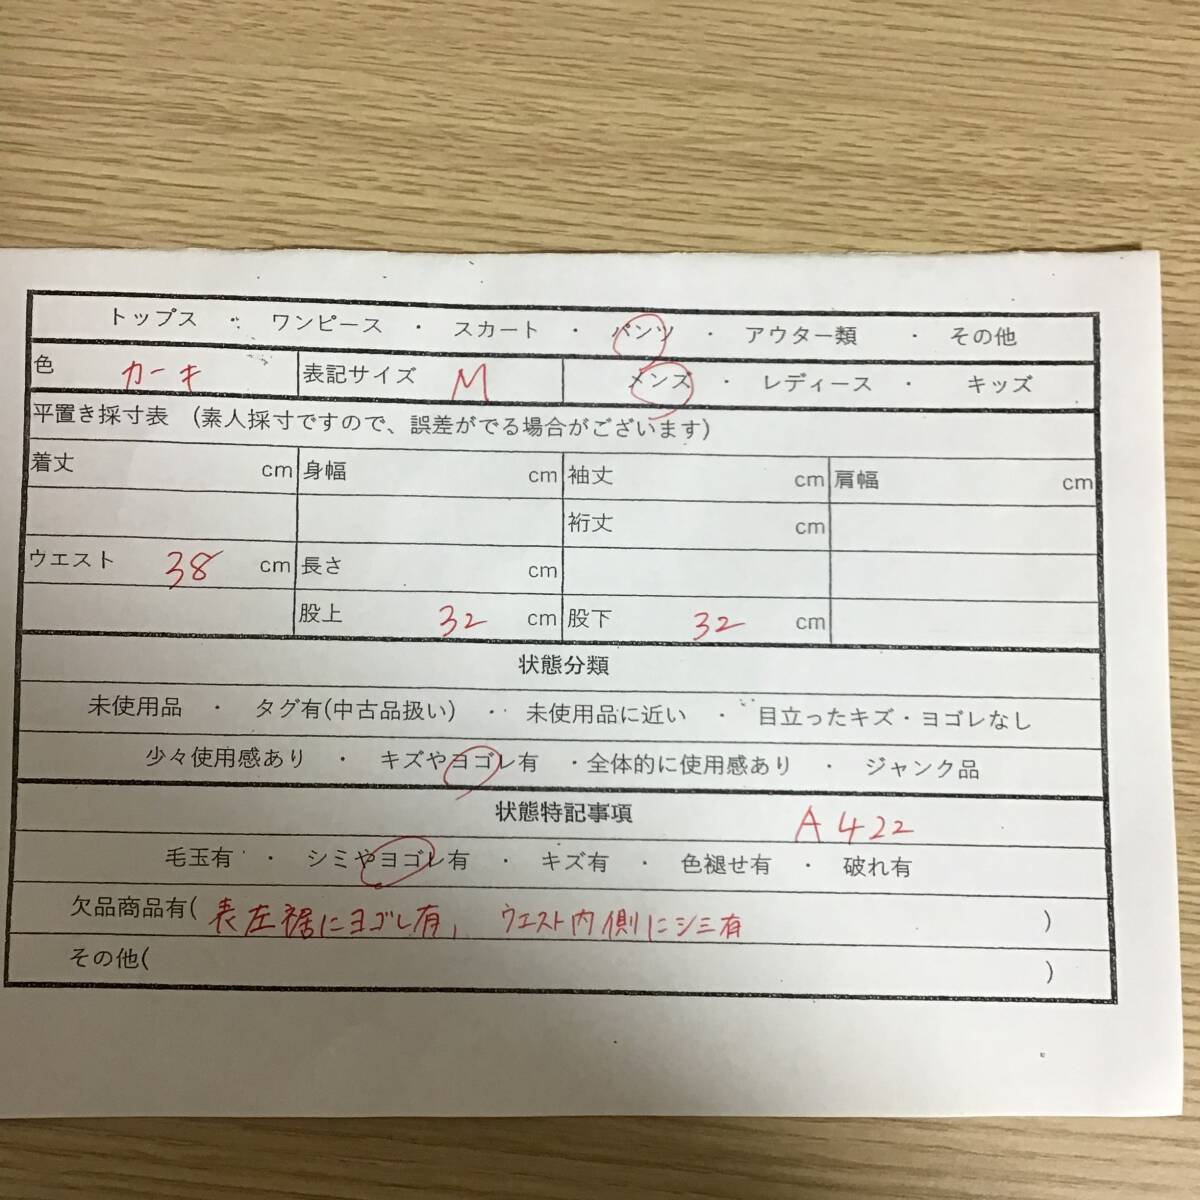 トップス ・ ワンピース ・ スカート ・ パンツ ・ アウター類 ・ その他
色 カーキ 表記サイズ M メンズ ・ レディース ・ キッズ
平置き採寸表 (素人採寸ですので、誤差がでる場合がございます)
着丈 cm 身幅 cm 袖丈 cm 肩幅 cm
裄丈 cm
ウエスト 38 cm 長さ cm
股上 32 cm 股下 32 cm
状態分類
未使用品 ・ タグ有(中古品扱い) ・ 未使用品に近い ・ 目立ったキズ・ヨゴレなし
少々使用感あり ・ キズやヨゴレ有 ・全体的に使用感あり ・ ジャンク品
状態特記事項 A422
毛玉有 ・ シミやヨゴレ有 ・ キズ有 ・ 色褪せ有 ・ 破れ有
欠品商品有( 表左裾にヨゴレ有、 ウエスト内側にシミ有 )
その他( )